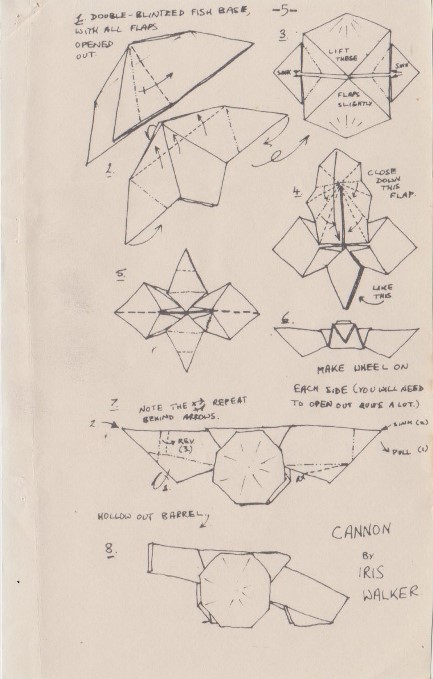 -5-
1. DOUBLE-BLINTZED FISH BASE,
WITH ALL FLAPS
OPENED
OUT.
2.
3.
LIFT
THESE
SINK
SINK
FLAPS
SLIGHTLY
4.
CLOSE
DOWN
THIS
FLAP.
LIKE
THIS
5.
6.
MAKE WHEEL ON
EACH SIDE (YOU WILL NEED
TO OPEN OUT QUITE A LOT.)
7.
NOTE THE REPEAT
BEHIND ARROWS.
REV
(3.)
SINK (2)
PULL (1)
HOLLOW OUT BARREL,
8.
CANNON
BY
IRIS
WALKER